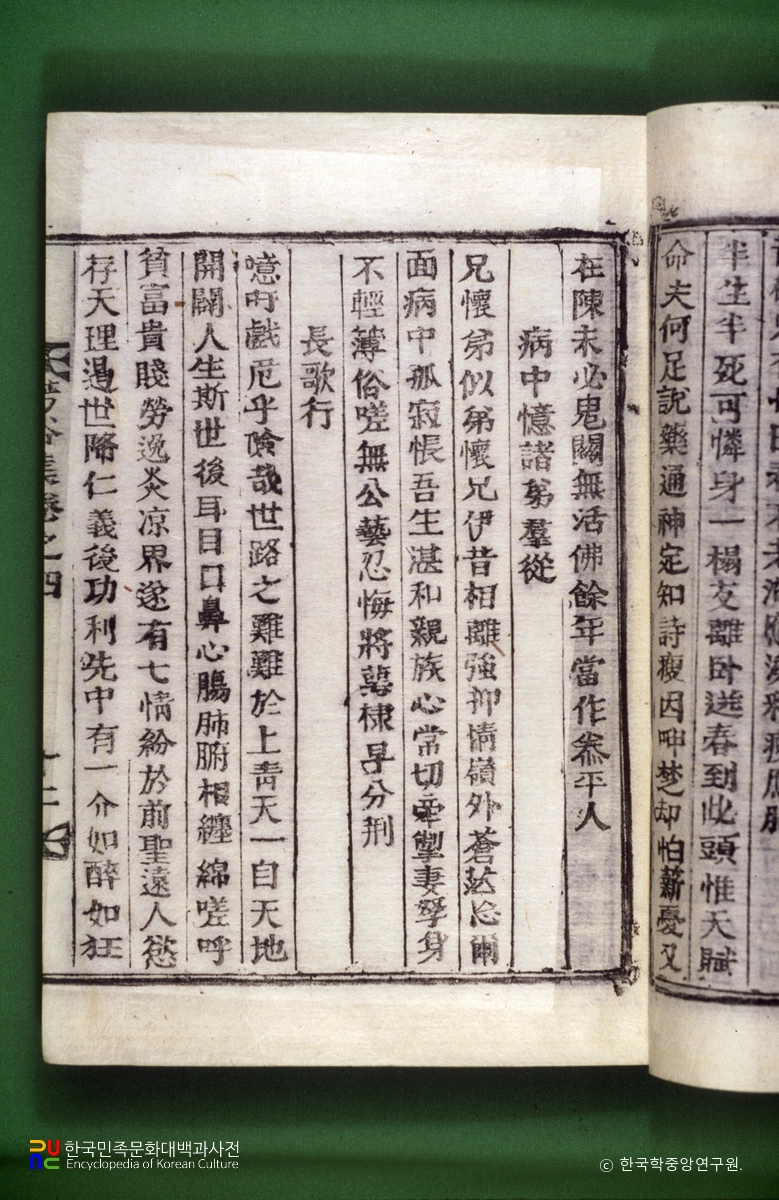 半生半死可憐身一榻支離卧送春到此頭惟天賦
命夫何足說藥通神定知詩瘦因呻楚却怕薪憂又
在陳未必鬼關無活佛餘年當作叅平人
病中憶諸弟羣從
兄懷弟似弟懷兄伊昔相離強抑情嶺外蒼茫忘爾
面病中孤寂悵吾生湛和親族心常切牽掣妻孥身
不輕薄俗嗟無公藝忍悔將蕚棣早分荆
長歌行
噫吁戲危乎險哉世路之難難於上靑天一自天地
開闢人生斯世後耳目口鼻心腸肺腑相纒綿嗟呼
貧富貴賤勞逸炎凉界遂有七情紛於前聖遠人慾
存天理遏世降仁義後功利先中有一介如醉如狂
集卷之四
十二
한국민족문화대백과사전
Encyclopedia of Korean Culture
ⓒ 한국학중앙연구원.